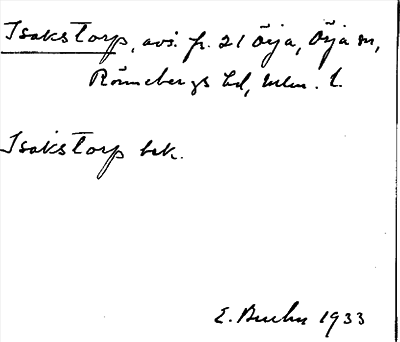 Isakstorp, avs. fr. 21 Öija, Öija sn,
Rönnebergs hd, Mlm. l.
Isakstorp bek.
E. Buchn 1933